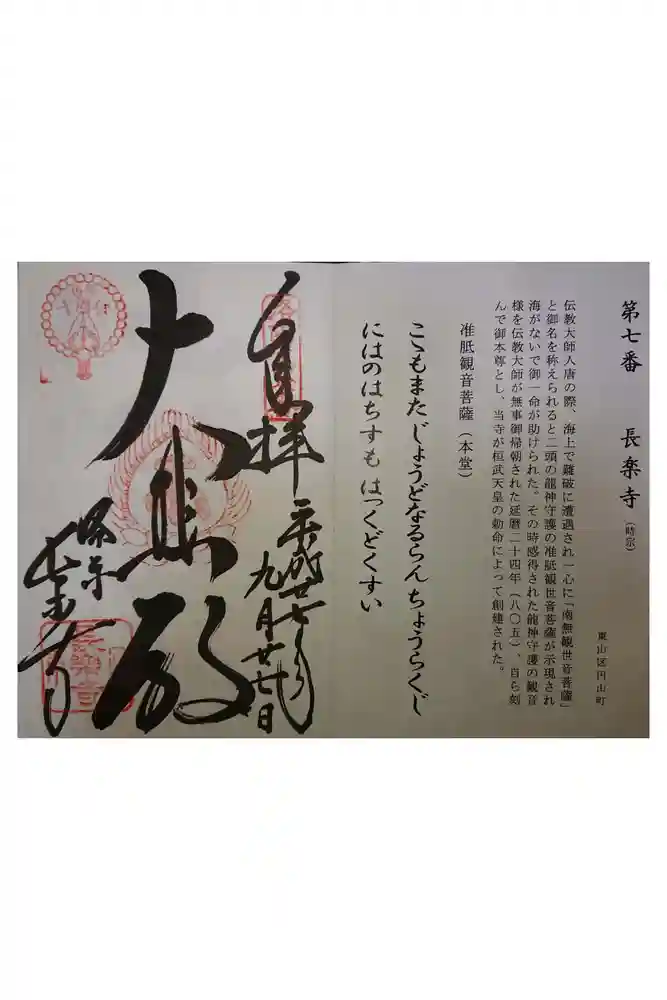 第七番 長楽寺（時宗）
東山区円山町
伝教大師入唐の際、海上で難破に遭遇され一心に「南無観世音菩薩」
と御名を称えられると二頭の龍神守護の准胝観世音菩薩が示現され
海がないで御一命が助けられた。その時感得された龍神守護の観音
様を伝教大師が無事御帰朝された延暦二十四年（八〇五）、自ら刻
んで御本尊とし、当寺が桓武天皇の勅命によって創建された。
准胝観音菩薩（本堂）
こゝもまた じょうどなるらん ちょうらくじ
にはのはちすも はっくどくすい
奉拝 平成廿七年
九月廿七日
大悲殿
長楽寺